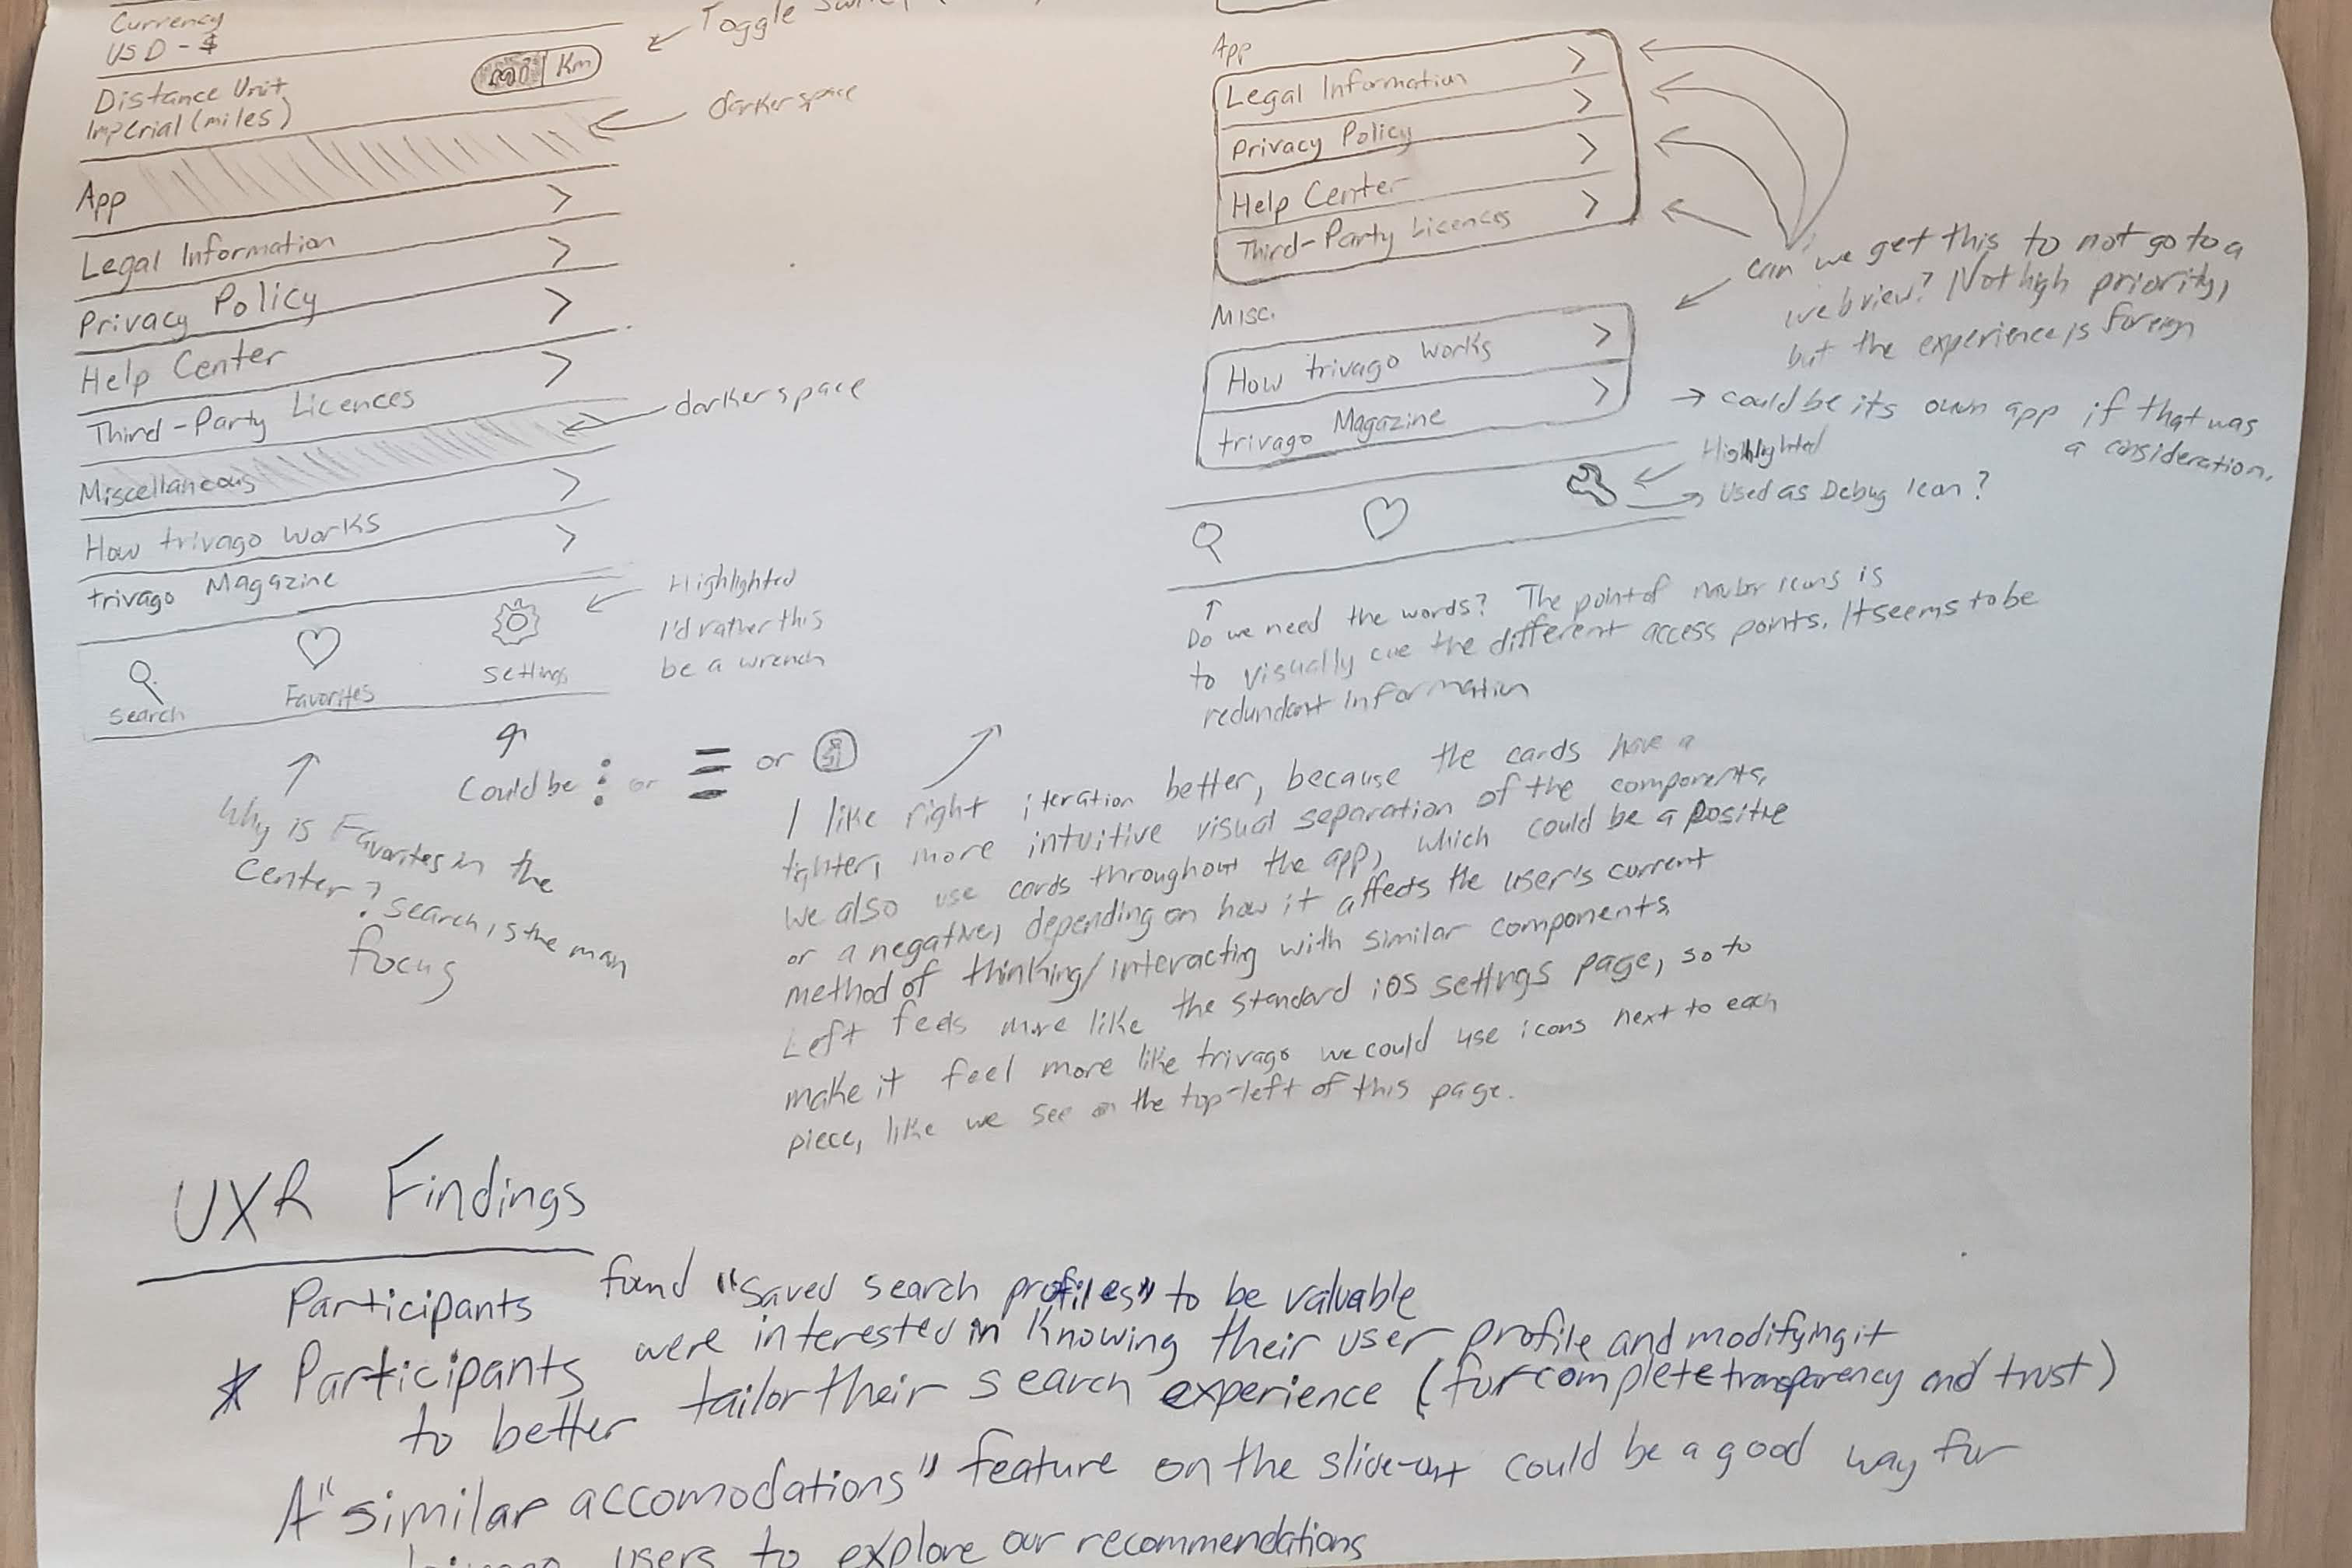 Currency
USD - $
Toggle
Distance Unit
Imperial (miles)
mi Km
darker space
App
Legal Information
Privacy Policy
Help Center
Third-Party Licences
darker space
Miscellaneous
How trivago works
trivago Magazine
Highlighted
I'd rather this
be a wrench
Search
Favorites
Settings
Why is Favorites in the
center? Search is the main
focus
Could be or or
App
Legal Information
Privacy Policy
Help Center
Third-Party Licences
can we get this to not go to a
webview? Not high priority,
but the experience is foreign
Misc.
How trivago works
trivago Magazine
→ could be its own app if that was
a consideration.
Highlighted
Used as Debug Icon?
Do we need the words? The point of navbar icons is
to visually cue the different access points. It seems to be
redundant information
I like right iteration better, because the cards have a
tighter, more intuitive visual separation of the components.
We also use cards throughout the app, which could be a positive
or a negative, depending on how it affects the user's current
method of thinking/interacting with similar components.
Left feels more like the standard iOS settings page, so to
make it feel more like trivago we could use icons next to each
piece, like we see on the top-left of this page.
UXR Findings
Participants found "saved search profiles" to be valuable
* Participants were interested in knowing their user profile and modifying it
to better tailor their search experience (for complete transparency and trust)
A "similar accomodations" feature on the slide-out could be a good way for
users to explore our recommendations